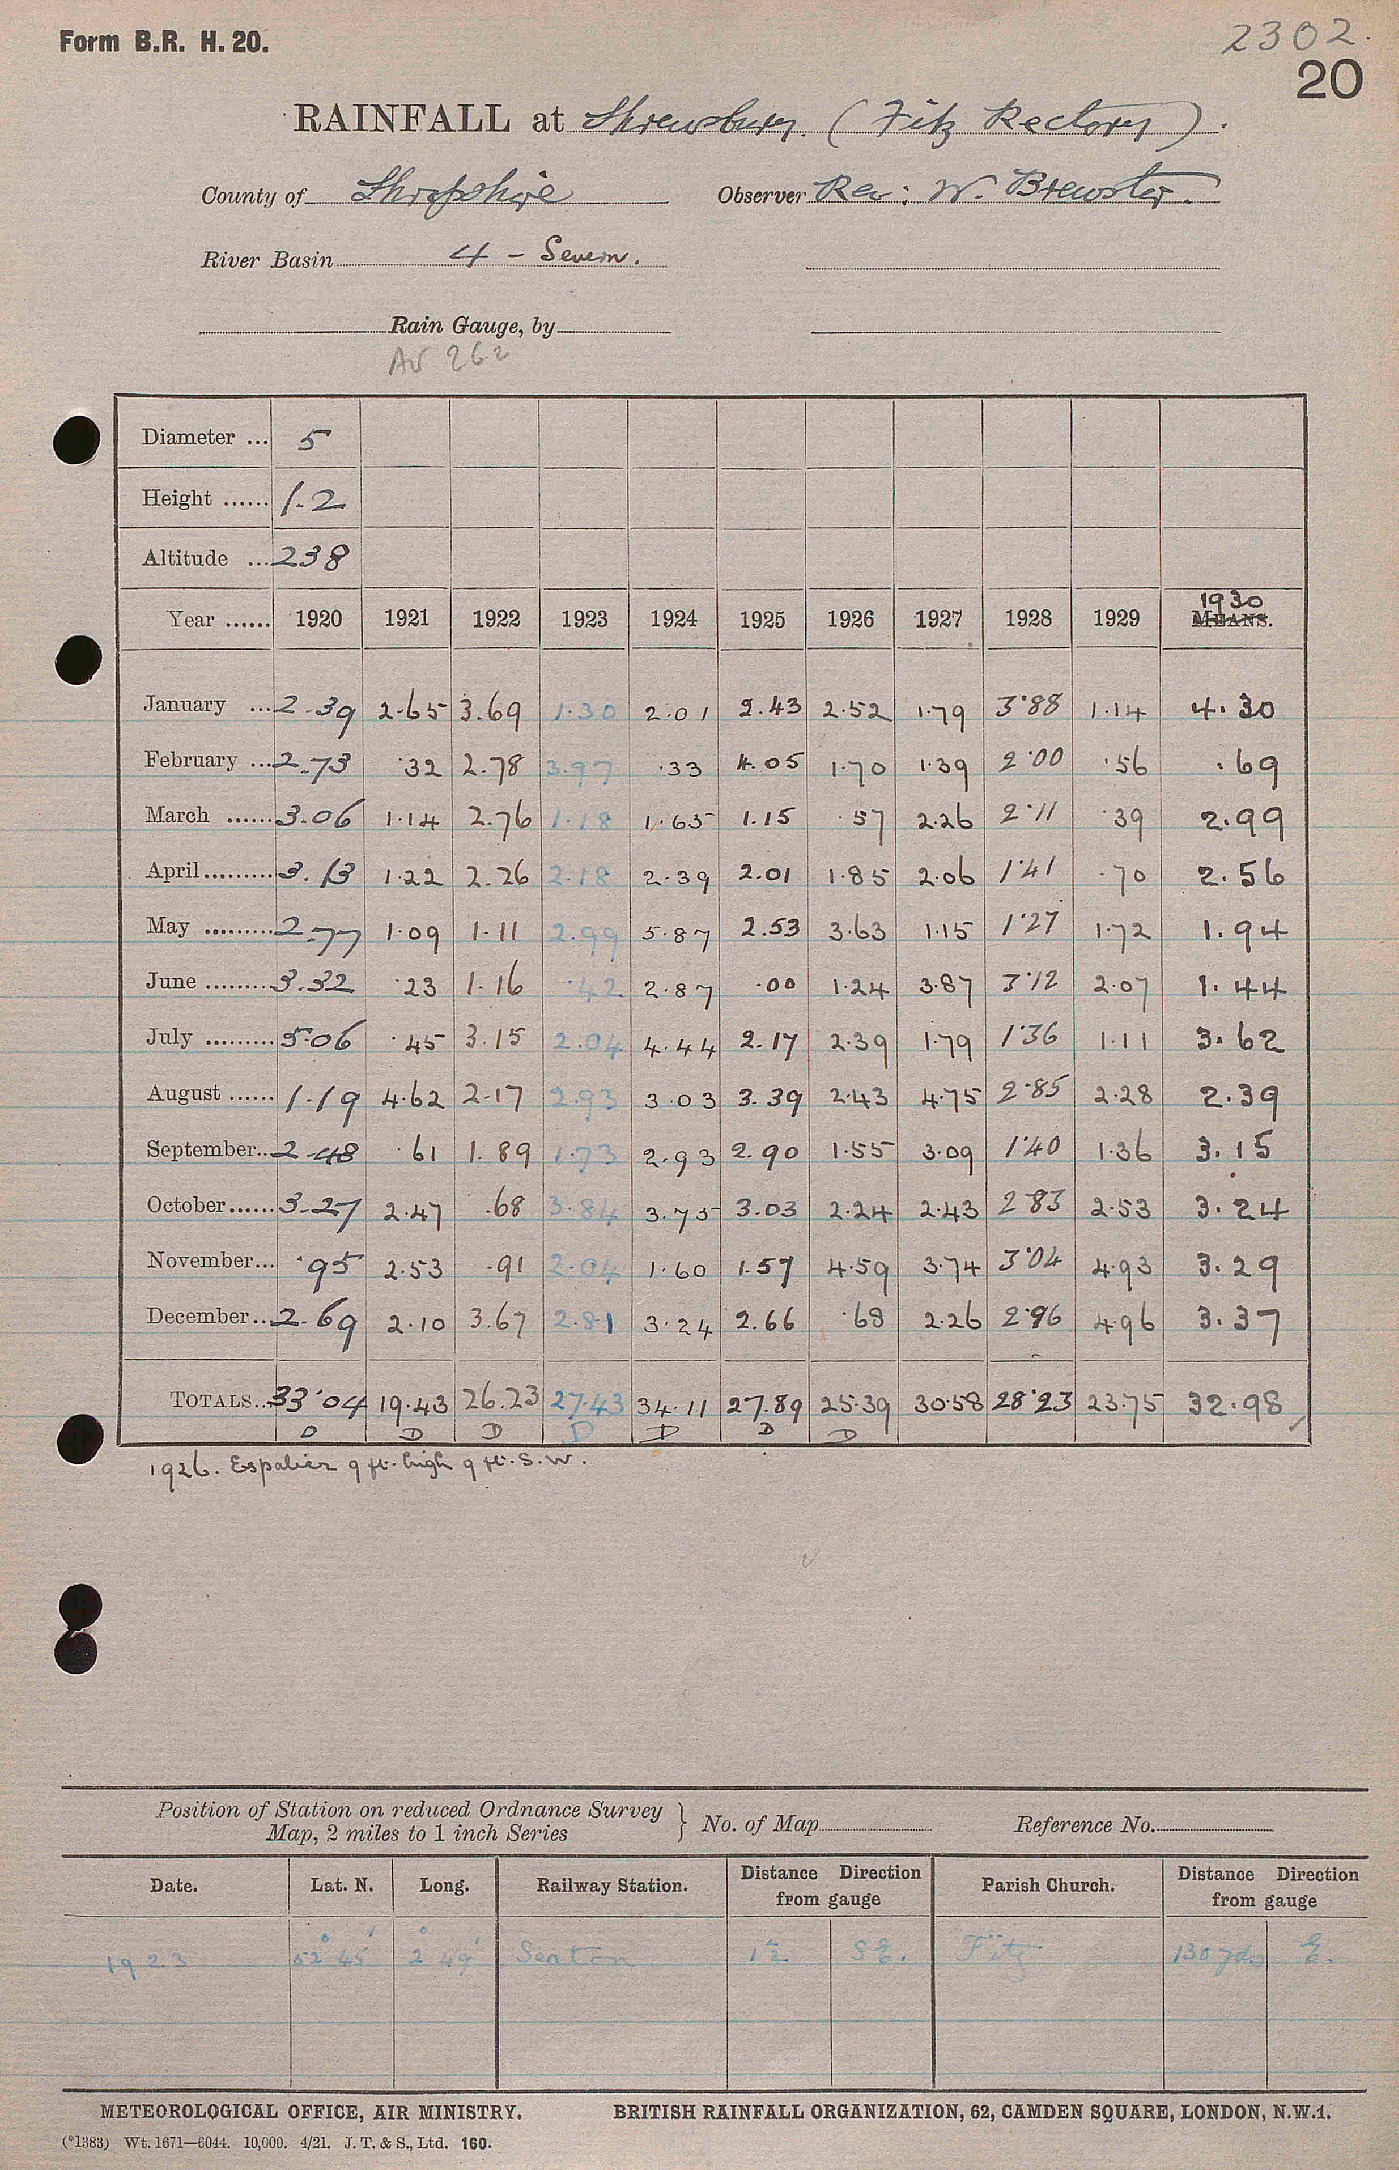 Form B.R. H. 20.
2302.
20
RAINFALL at Shrewsbury. (Fitz Rectory).
County of Shropshire Observer Rev: W. Brewster.
River Basin 4 - Severn.
Rain Gauge, by
Av 262
Diameter ... 5
Height ...... 1.2
Altitude ... 238
Year ...... 1920 1921 1922 1923 1924 1925 1926 1927 1928 1929 1930 MEANS.
January ... 2.39 2.65 3.69 1.30 2.01 2.43 2.52 1.79 3.88 1.14 4.30
February ... 2.73 .32 2.78 3.97 .33 4.05 1.70 1.39 2.00 .56 .69
March ...... 3.06 1.14 2.76 1.18 1.65 1.15 .57 2.26 2.11 .39 2.99
April ......... 3.13 1.22 2.26 2.18 2.39 2.01 1.85 2.06 1.41 .70 2.56
May ......... 2.77 1.09 1.11 2.99 5.87 2.53 3.63 1.15 1.27 1.72 1.94
June ......... 3.32 .23 1.16 .42 2.87 .00 1.24 3.87 3.12 2.07 1.44
July ......... 5.06 .45 3.15 2.04 4.44 2.17 2.39 1.79 1.36 1.11 3.62
August ...... 1.19 4.62 2.17 2.93 3.03 3.39 2.43 4.75 2.85 2.28 2.39
September.. 2.48 .61 1.89 1.73 2.93 2.90 1.55 3.09 1.40 1.36 3.15
October...... 3.27 2.47 .68 3.84 3.75 3.03 2.24 2.43 2.83 2.53 3.24
November... .95 2.53 .91 2.04 1.60 1.57 4.59 3.74 3.04 4.93 3.29
December... 2.69 2.10 3.67 2.81 3.24 2.66 .68 2.26 2.96 4.96 3.37
TOTALS.. 33.04 19.43 26.23 27.43 34.11 27.89 25.39 30.58 28.23 23.75 32.98
D D D D D D D
1926. Espalier 9 ft. high 9 ft. S.W.
Position of Station on reduced Ordnance Survey
Map, 2 miles to 1 inch Series } No. of Map Reference No.
Date. Lat. N. Long. Railway Station. Distance Direction from gauge Parish Church. Distance Direction from gauge
1923 52° 45' 2° 49' 1½ S E. Fitz 130 yds E.
METEOROLOGICAL OFFICE, AIR MINISTRY. BRITISH RAINFALL ORGANIZATION, 62, CAMDEN SQUARE, LONDON, N.W.1.
(*1383) Wt. 1671—6044. 10,000. 4/21. J. T. & S., Ltd. 160.